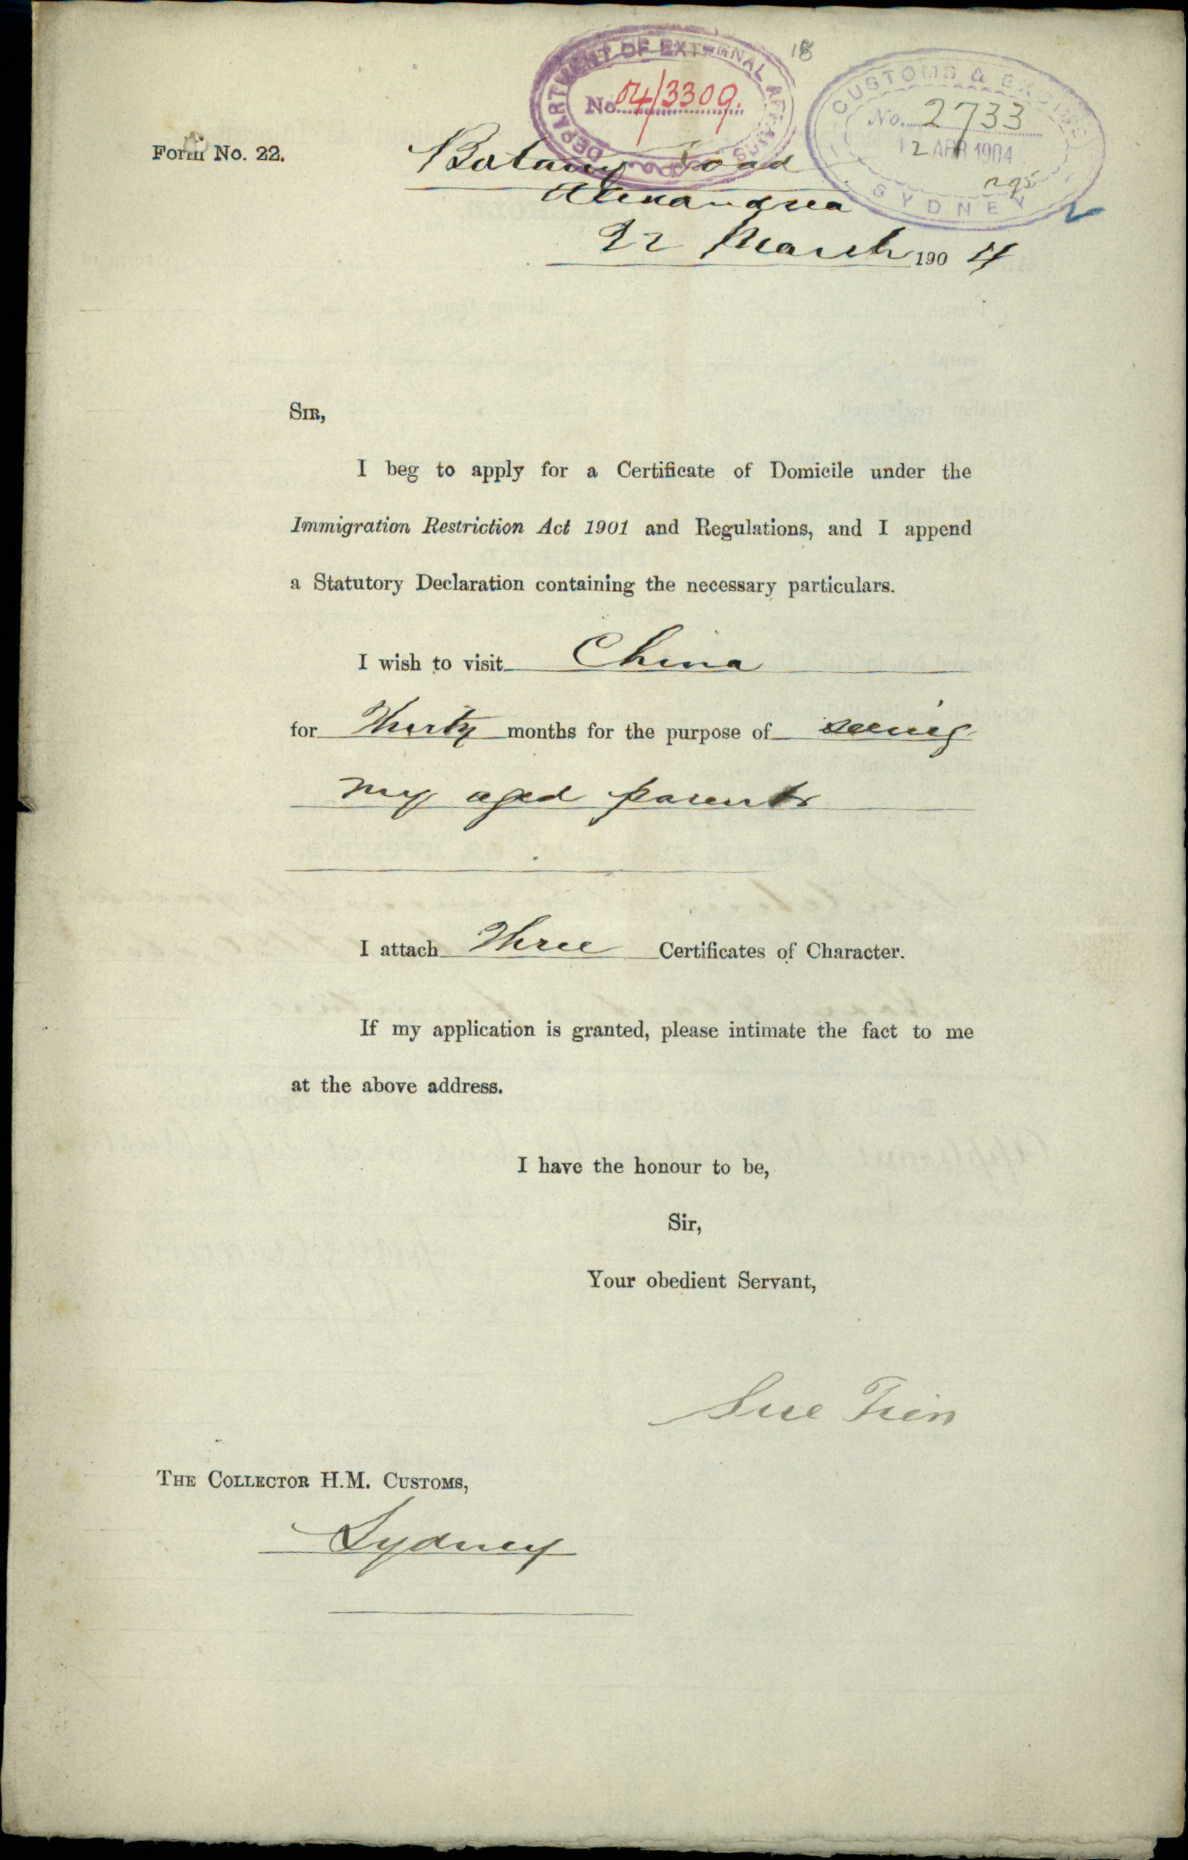 18
DEPARTMENT OF EXTERNAL AFFAIRS
No. 04/3309.
CUSTOMS & EXCISE
No. 2733
12 APR 1904
SYDNEY
Form No. 22.
Botany Road
Alexandria
22 March 1904
SIR,
I beg to apply for a Certificate of Domicile under the
Immigration Restriction Act 1901 and Regulations, and I append
a Statutory Declaration containing the necessary particulars.
I wish to visit China
for Thirty months for the purpose of seeing
my aged parents
I attach Three Certificates of Character.
If my application is granted, please intimate the fact to me
at the above address.
I have the honour to be,
Sir,
Your obedient Servant,
Sue Tien
THE COLLECTOR H.M. CUSTOMS,
Sydney